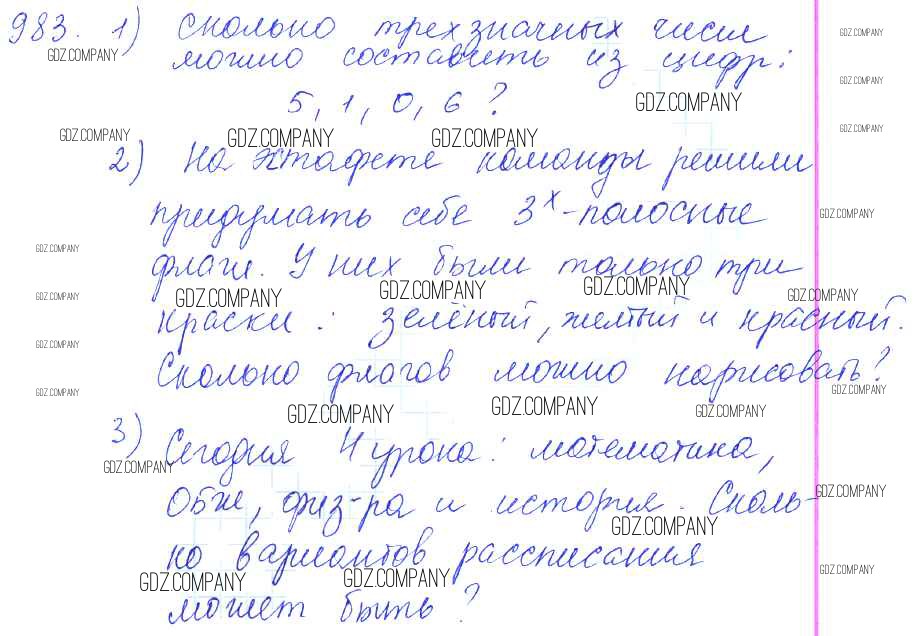 983. 1) Сколько трехзначных чисел
GDZ.COMPANY
можно составить из цифр:
GDZ.COMPANY
GDZ.COMPANY
5, 1, 0, 6 ?
GDZ.COMPANY
GDZ.COMPANY GDZ.COMPANY GDZ.COMPANY GDZ.COMPANY
2) На эстафете команды решили
придумать себе 3х-полосные
GDZ.COMPANY
GDZ.COMPANY
флаги. У них были только три
GDZ.COMPANY GDZ.COMPANY GDZ.COMPANY GDZ.COMPANY GDZ.COMPANY
краски: зелёный, желтый и красный.
GDZ.COMPANY
Сколько флагов можно нарисовать?
GDZ.COMPANY GDZ.COMPANY
GDZ.COMPANY GDZ.COMPANY GDZ.COMPANY
3) Сегодня 4 урока: математика,
GDZ.COMPANY
ОБЖ, физ-ра и история. Сколь-
GDZ.COMPANY
GDZ.COMPANY
ко вариантов рассписания
GDZ.COMPANY GDZ.COMPANY GDZ.COMPANY
может быть?